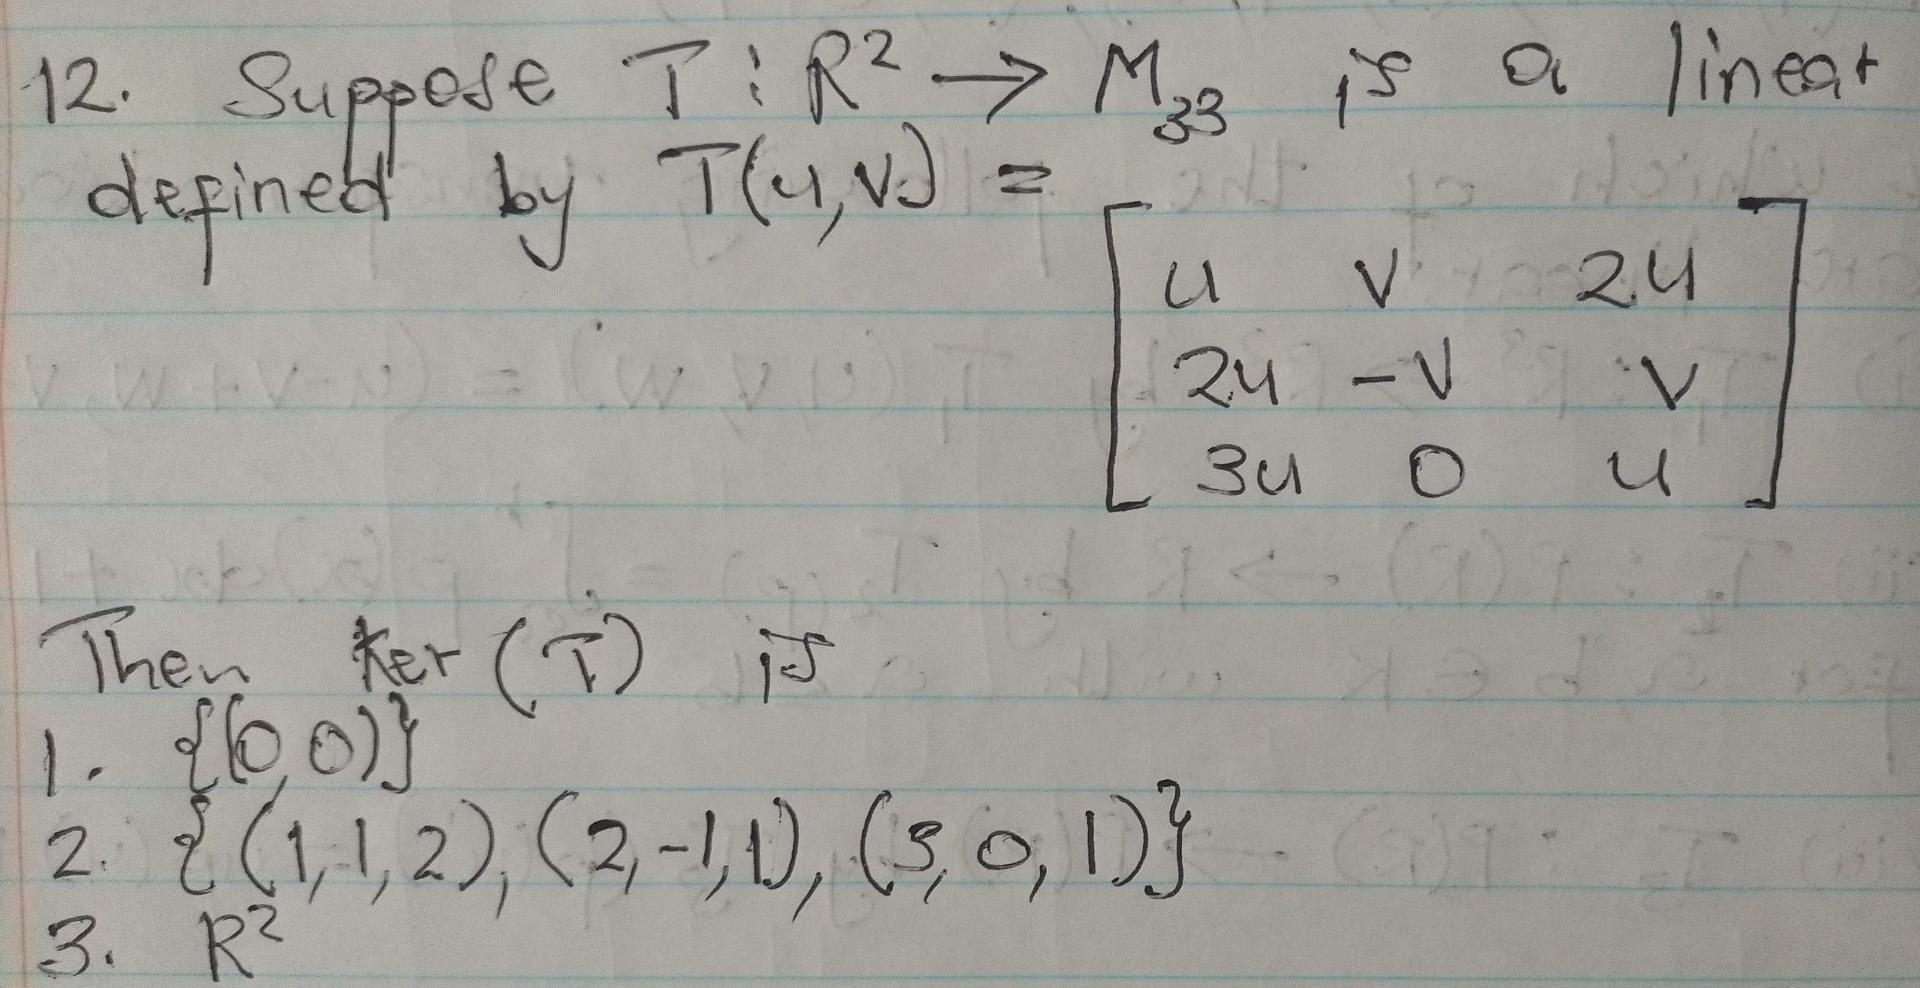 12. Suppose T : R² → M₃₃ is a linear
defined by T(u,v) =
[ u v 2u
2u -v v
3u 0 u ]
Then ker (T) is
1. {(0,0)}
2. {(1,1,2), (2,-1,1), (3,0,1)}
3. R²